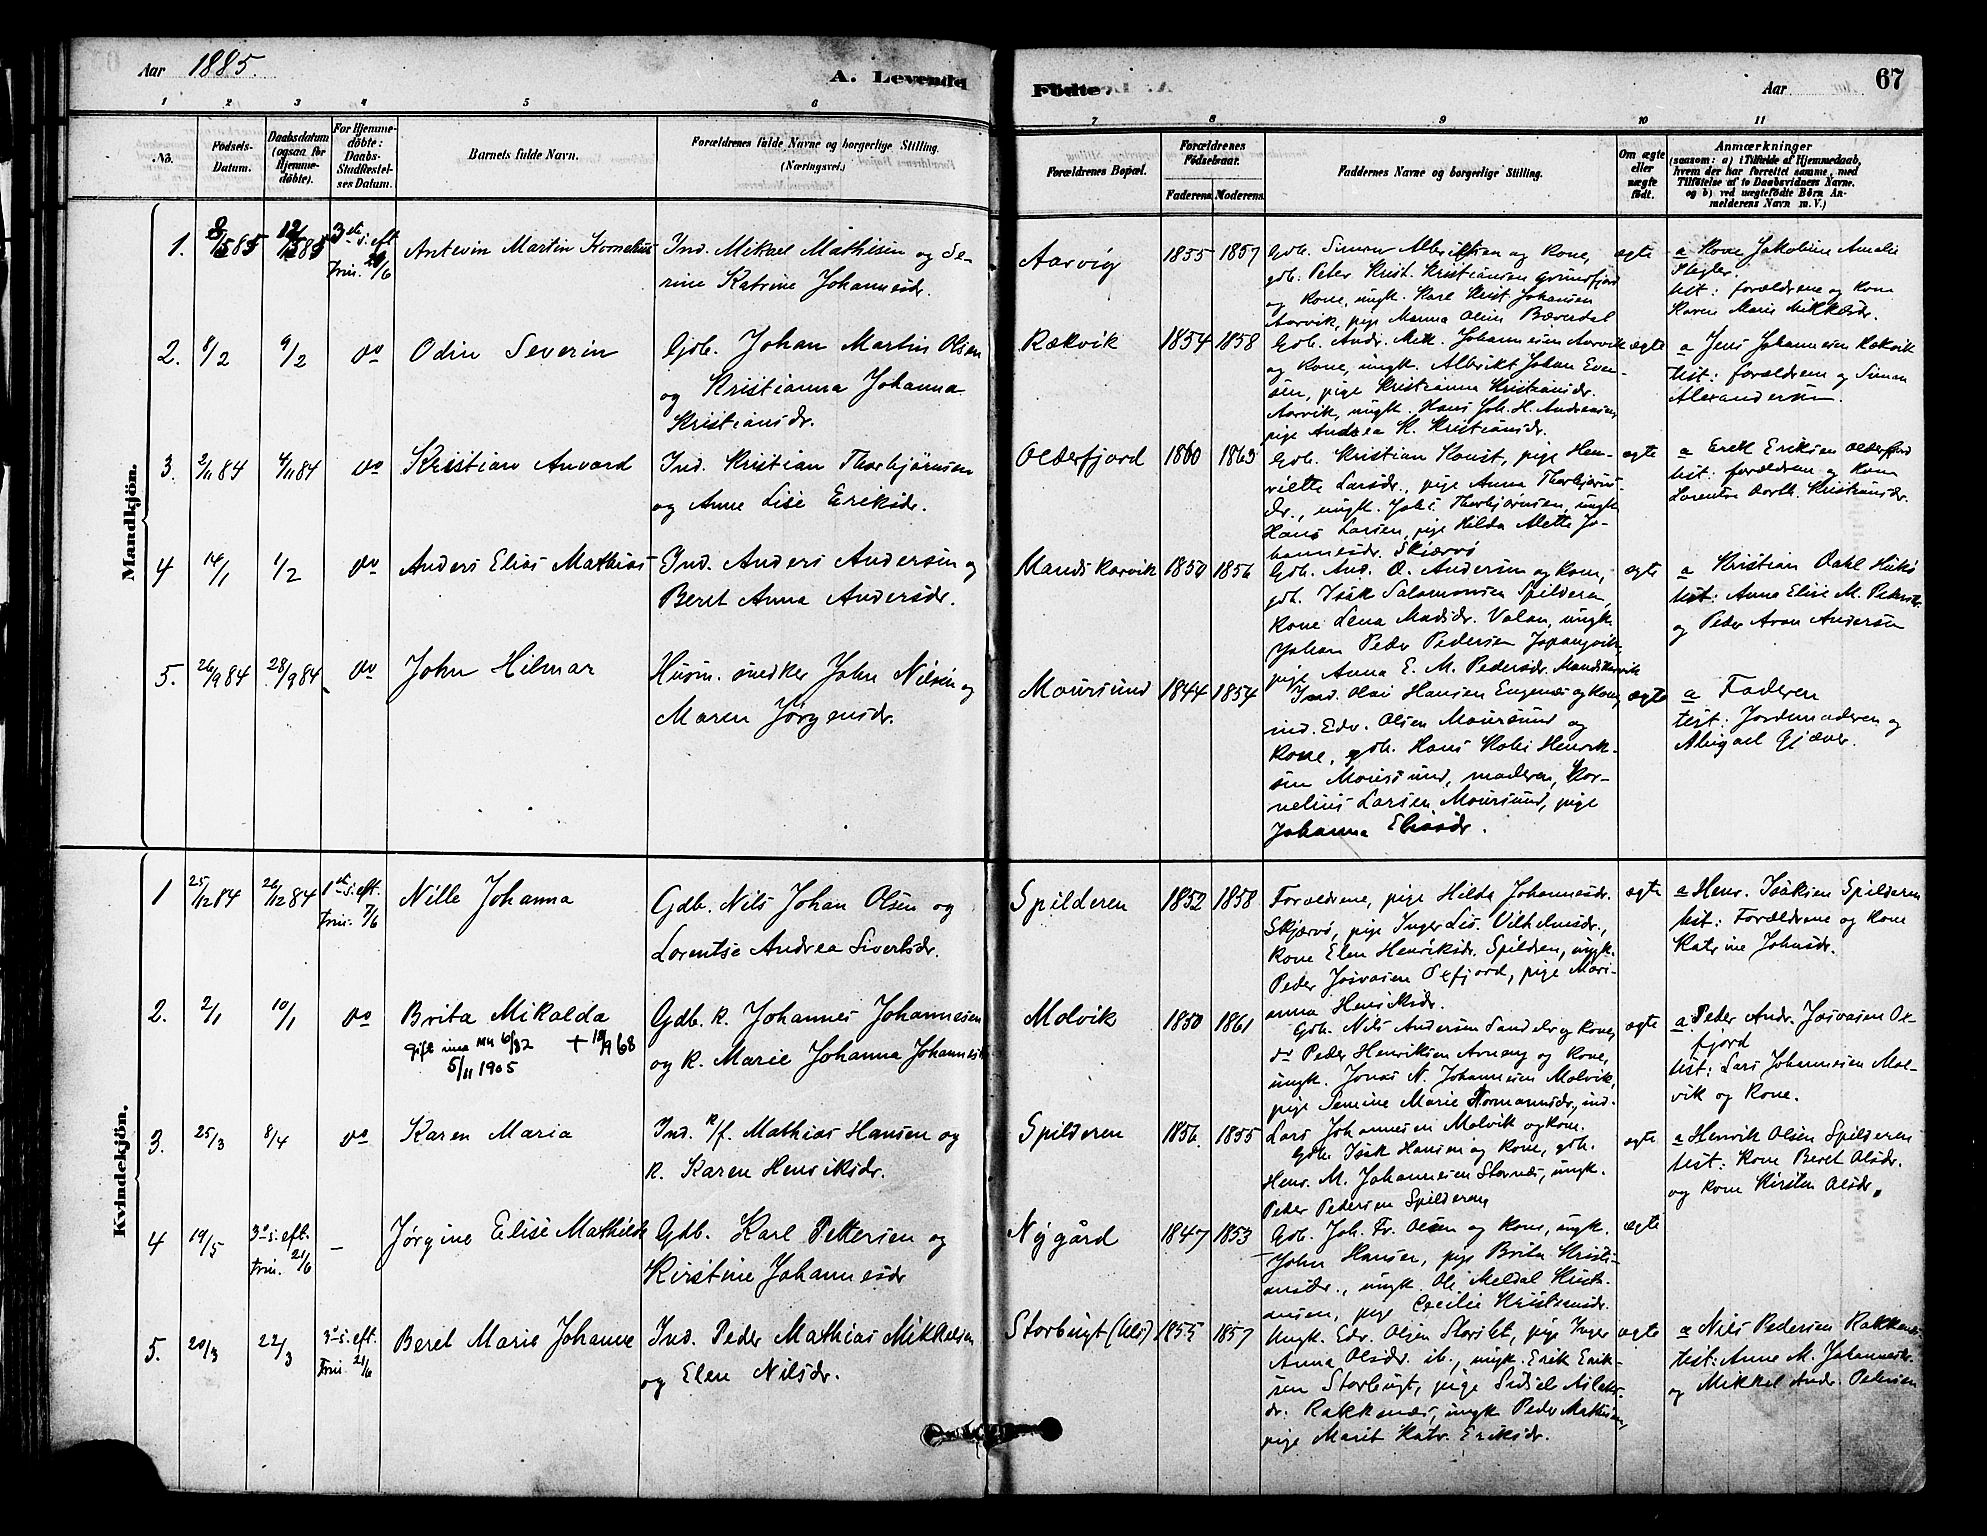 Aar 1885.
A. Levende
Födte.
Aar
67
1 2 3 4 5 6 7 8 9 10 11
No.
Födsels-
Datum.
Daabsdatum
(ogsaa for
Hjemme-
döbte).
For Hjemme-
döbte:
Daabs-
Stadfæstel-
ses Datum.
Barnets fulde Navn.
Forældrenes fulde Navne og borgerlige Stilling.
(Næringsvei.)
Forældrenes Bopæl.
Forældrenes
Födselsaar.
Faderens. Moderens.
Faddernes Navne og borgerlige Stilling.
Om ægte
eller
uægte
födt.
Anmærkninger
(saasom: a) i Tilfælde af Hjemmedaab,
hvem der har forrettet samme, med
Tilföielse af to Daabsvidners Navne.
og b) ved uægtefödte Börn An-
melderens Navn m. V.)
Mandkjön.
1.
3de s. eft.
Trin. 21/6
Antevin Martin Kornelius
Ind. Mikael Mathisen og Se-
rine Katrine Johannesdr.
Aarvig
1855 1857
Gdb. Simon Albrigtsen og Kone,
gdb. Peter Krist. Kristiansen Grundfjord
og Kone, ungk. Karl Krist. Johansen
Aarvik, pige Manna Oline Bæverdal
ægte
a Kone Jakobine Amalie
test: forældrene og Kone
Karen Marie Mikkelsdr.
2. 8/2 9/2 do
Odin Severin
Gdb. Johan Martin Olsen
og Kristianna Johanna
Kristiansdr.
Rækvik
1854 1858
Gdb. Andr. Mik. Johannesen Aarvik
og Kone, ungk. Albrikt Johan Even-
sen, pige Kristianna Kristiansdr.
Aarvik, ungk. Hans Joh. H. Andreasen,
pige Andrea K. Kristiansdr.
ægte
a Jens Johannesen Rækvik
test: forældrene og Simon
Alexandersen.
3. 2/11 84 4/11 84 do
Kristian Anvard
Ind. Kristian Thorbjørnsen
og Anne Lise Eriksdr.
Olderfjord
1860 1863
Gdb. Kristian Konst, pige Hen-
riette Larsdr., pige Anna Thorbjørns-
dr., ungk. Johs. Thorbjørnsen, ungk.
Hans Larsen, pige Hilda Alette Jo-
hannesdr. Skjærvö
ægte
a Erik Eriksen Olderfjord
test: forældrene og Kone
Lorentse Dorth. Kristiansdr.
4 14/1 1/2 do
Anders Elias Mathias
Ind. Anders Andersen og
Beret Anna Andersdr.
Mandskarvik
1850 1856
Gdb. And. O. Andersen og Kone,
gdb. Isak Salamonsen Spilderen,
Kone Lena Madsdr. Valan, ungk.
Johan Peder Pedersen
pige Anna E. M. Pedersdr. Mandskarvik
ægte
a Kristian Dahl
test: Anne Elise M. Pedersdr.
og Peder Aron Andersen
5. 26/9 84 28/9 84 do
John Hilmar
Husm. snedker John Nilsen og
Maren Jørgensdr.
Maursund
1844 1854
Ind. Olai Hansen Engenæs og Kone,
ind. Edv. Olsen Maursund og
Kone, gdb. Hans Hendrik-
sen Maursund, moderen, Kor-
nelius Larsen Maursund, pige
Johanna Eliasdr.
ægte
a Faderen
test: Jordemoderen og
Abigael Gjæver.
Kvindekjön.
1 25/12 84 26/12 84
1ste s. eft.
Trin. 7/6
Nille Johanna
Gdb. Nils Johan Olsen og
Lorentse Andrea Sivertsdr.
Spilderen
1852 1858
Forældrene, pige Hilda Johannesdr.
Skjærvö, pige Inger Lis. Vilhelmsdr.,
Kone Elen Henriksdr. Spildren, ungk.
Peder Josvasen Oxfjord, pige Mari-
anna Henriksdr.
ægte
a Henr. Isaksen Spilderen
test: Forældrene og Kone
Katrine Johnsdr.
2. 2/1 10/1 do
Brita Mikalda
gift 6/82 + 18/9 68
5/11 1905
Gdb. k. Johannes Johannesen
og k. Marie Johanna Johannesdr
Molvik
1850 1861
Gdb. Nils Andersen og Kone,
do Peder Henriksen Arnøy og Kone,
ungk. Jonas N. Johannesen Molvik,
pige Semine Marie Normannsdr, ind.
Lars Johannesen Molvik og Kone.
ægte
a. Peder Andr. Josvasen Ox-
fjord
test: Lars Johannesen Mol-
vik og Kone.
3. 25/3 8/4 do
Karen Maria
Ind. k/f. Mathias Hansen og
k. Karen Henriksdr.
Spilderen
1856. 1855
Gdb. Isak Hansen og Kone, gdb.
Henr. M. Johannesen Stornes, ungk.
Peder Pedersen Spilderen
ægte
a Henrik Olsen Spilderen
test: Kone Beret Olsdr.
og Kone Kirsten Olsdr.
4 19/5
3de s. eft.
Trin. 21/6
-
Jørgine Elise Mathilde
Gdb. Karl Pettersen og
Kirstine Johannesdr
Nygård
1847 1853
Gdb. Joh. Fr. Olsen og Kone, ungk.
John Hansen, pige Brita Kristi-
ansdr., ungk. Ole Meldal Kristi-
ansen, pige Cecilie Kristiansdr.
ægte
5. 20/3 22/3
3de s. eft.
Trin. 21/6
Beret Marie Johanne
Ind. Peder Mathias Mikkelsen
og Elen Nilsdr.
Storbugt (Uls)
1855 1857
Ungk. Edv. Olsen Storslet, pige Inger
Anna Olsdr. ib., ungk. Erik Erik-
sen Storbugt, pige Sidsel Aslaks-
dr. Rakkenæs, ungk Peder Mathisen,
pige Marit Katr. Eriksdr.
ægte
a Nils Pedersen Rakkenæs
test: Anne M. Johannesdr.
og Mikkel Andr. Pedersen